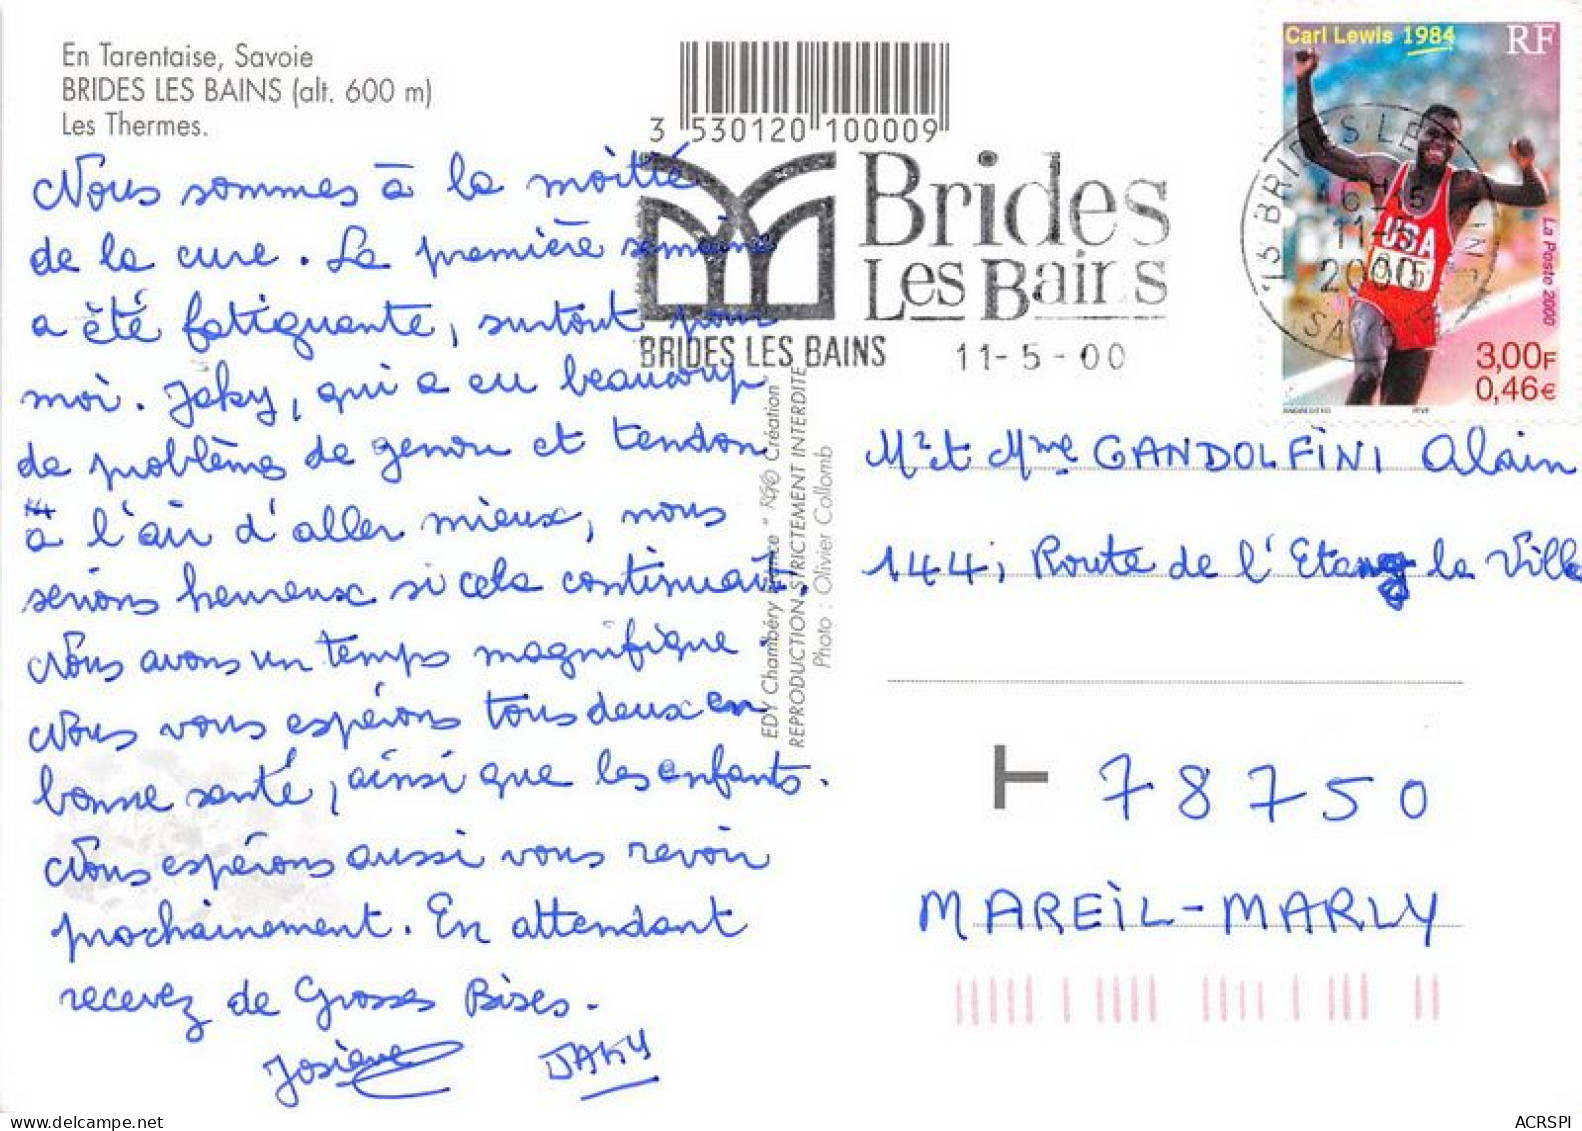 En Tarentaise, Savoie
BRIDES LES BAINS (alt. 600 m)
Les Thermes.
3 530120 100009
Brides
Les Bains
BRIDES LES BAINS 11-5-00
Carl Lewis 1984
RF
La Poste 2000
USA
3,00F
0,46€
73 BRIDES-LES-BAINS
16H15
11-5
2000
SAVOIE
Nous sommes à la moitié
de la cure. La première semaine
a été fatiguante, surtout pour
moi. Jaky, qui a eu beaucoup
de problèmes de genou et tendon
à l'air d'aller mieux, nous
serions heureux si cela continuait.
Nous avons un temps magnifique.
Nous vous espérons tous deux en
bonne santé, ainsi que les enfants.
Nous espérons aussi vous revoir
prochainement. En attendant
recevez de Grosses Bises.
Josiane JAKY
EDY Chambéry France " Création
REPRODUCTION STRICTEMENT INTERDITE
Photo : Olivier Collomb
Mr et Mme GANDOLFINI Alain
144, Route de l'Etang la Ville
T 78750
MAREIL-MARLY
ACRSPI